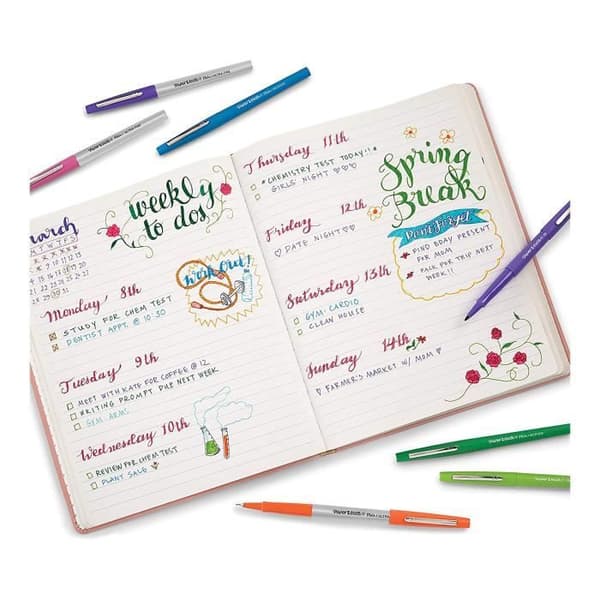 Paper Mate
Paper Mate
Paper Mate
weekly
to dos
arch
W T F S
Monday 8th
STUDY FOR CHEM TEST
DENTIST APPT. @ 10:30
Work Out!
Tuesday 9th
MEET WITH KATE FOR COFFEE @ 12
WRITING PROMPT DUE NEXT WEEK
GYM: ARMS
Wednesday 10th
REVIEW FOR CHEM TEST
PLANT SALE
Thursday 11th
CHEMISTRY TEST TODAY!!
GIRLS NIGHT ♡♡♡
Friday 12th
♡ DATE NIGHT ♡♡
Saturday 13th
GYM: CARDIO
CLEAN HOUSE
Sunday 14th
♡ FARMER'S MARKET W/ MOM ♡
Spring
Break
Don't Forget
FIND BDAY PRESENT
FOR MOM
PACK FOR TRIP NEXT
WEEK!!
Paper Mate
Paper Mate
Paper Mate